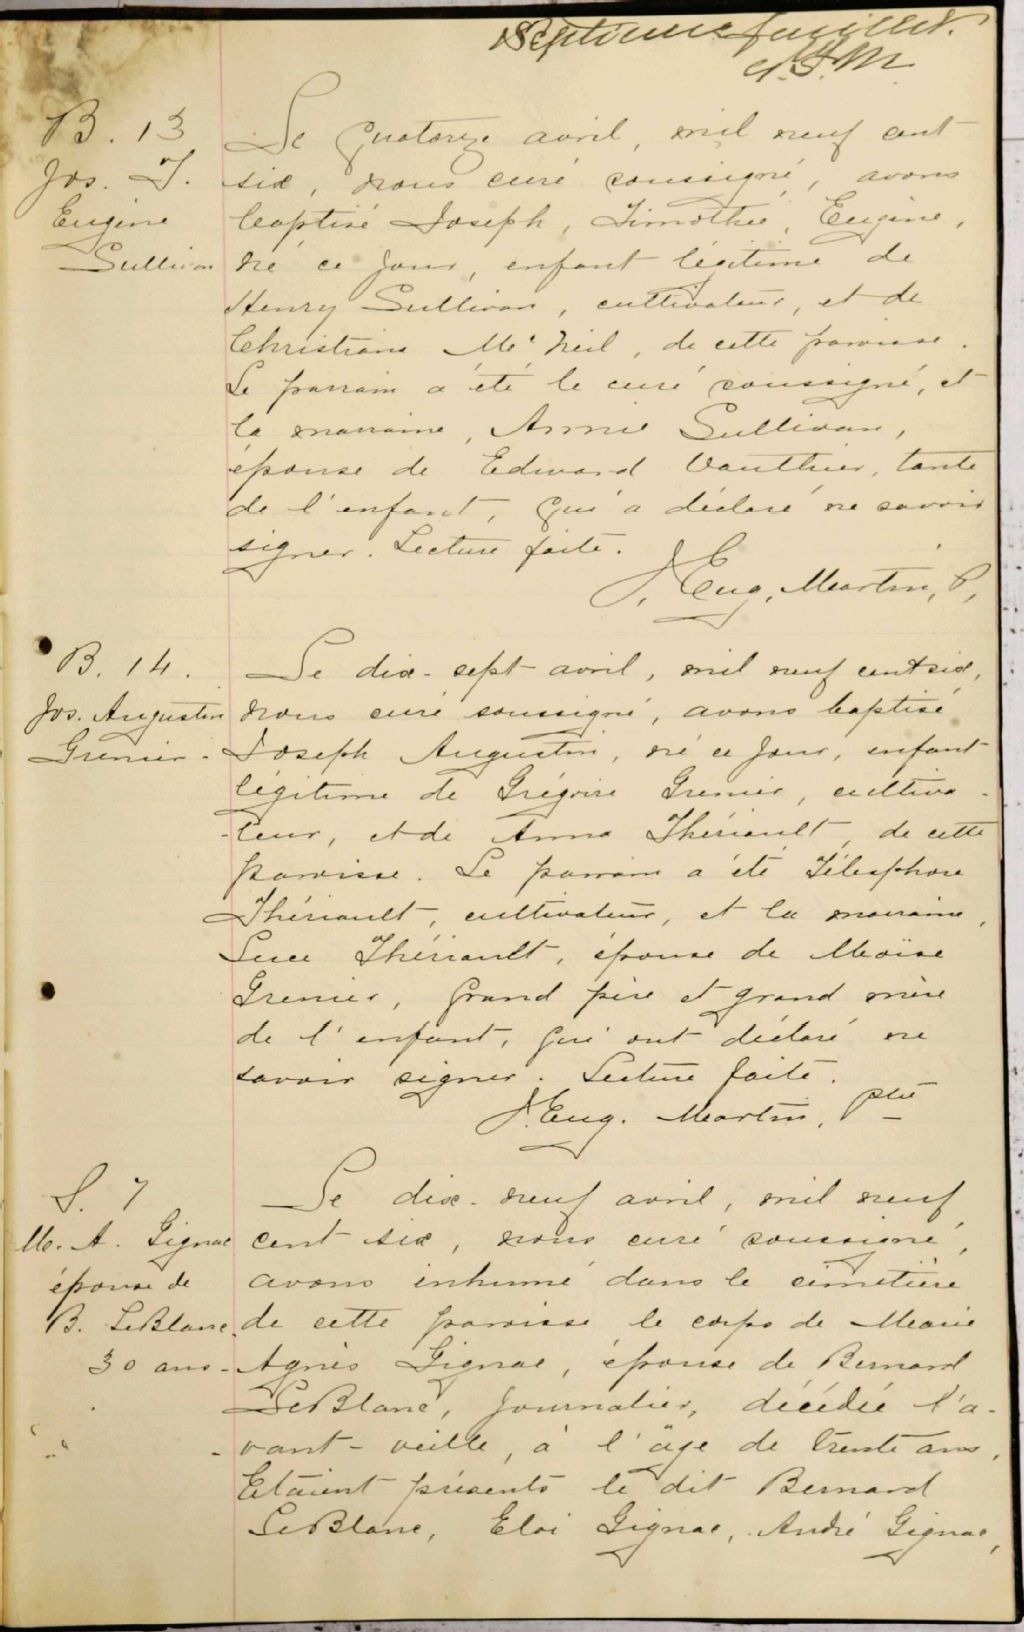 Septième feuillet.
B. 13
Jos. T.
Eugène
Sullivan
Le quatorze avril, mil neuf cent
six, nous curé soussigné, avons
baptisé Joseph, Timothée, Eugène,
né ce jour, enfant légitime de
Henry Sullivan, cultivateur, et de
Christiana Mc Neil, de cette paroisse.
Le parrain a été le curé soussigné, et
la marraine, Annie Sullivan,
épouse de Edward Vauthier, tante
de l'enfant, qui a déclaré ne savoir
signer. Lecture faite.
J. Eug. Martin, P,
B. 14.
Jos. Augustin
Grenier.
Le dix-sept avril, mil neuf cent six,
nous curé soussigné, avons baptisé
Joseph Augustin, né ce jour, enfant
légitime de Grégoire Grenier, cultiva-
-teur, et de Anna Thériault, de cette
paroisse. Le parrain a été Télesphore
Thériault, cultivateur, et la marraine,
Luce Thériault, épouse de Moïse
Grenier, grand père et grand mère
de l'enfant, qui ont déclaré ne
savoir signer. Lecture faite.
J. Eug. Martin, Ptre
S. 7
M. A. Gignac
épouse de
B. LeBlanc
30 ans-
Le dix-neuf avril, mil neuf
cent six, nous curé soussigné,
avons inhumé dans le cimetière
de cette paroisse le corps de Marie
Agnès Gignac, épouse de Bernard
LeBlanc, journalier, décédée l'a-
-vant-veille, à l'âge de trente ans,
Etaient présents le dit Bernard
LeBlanc, Eloi Gignac, André Gignac,